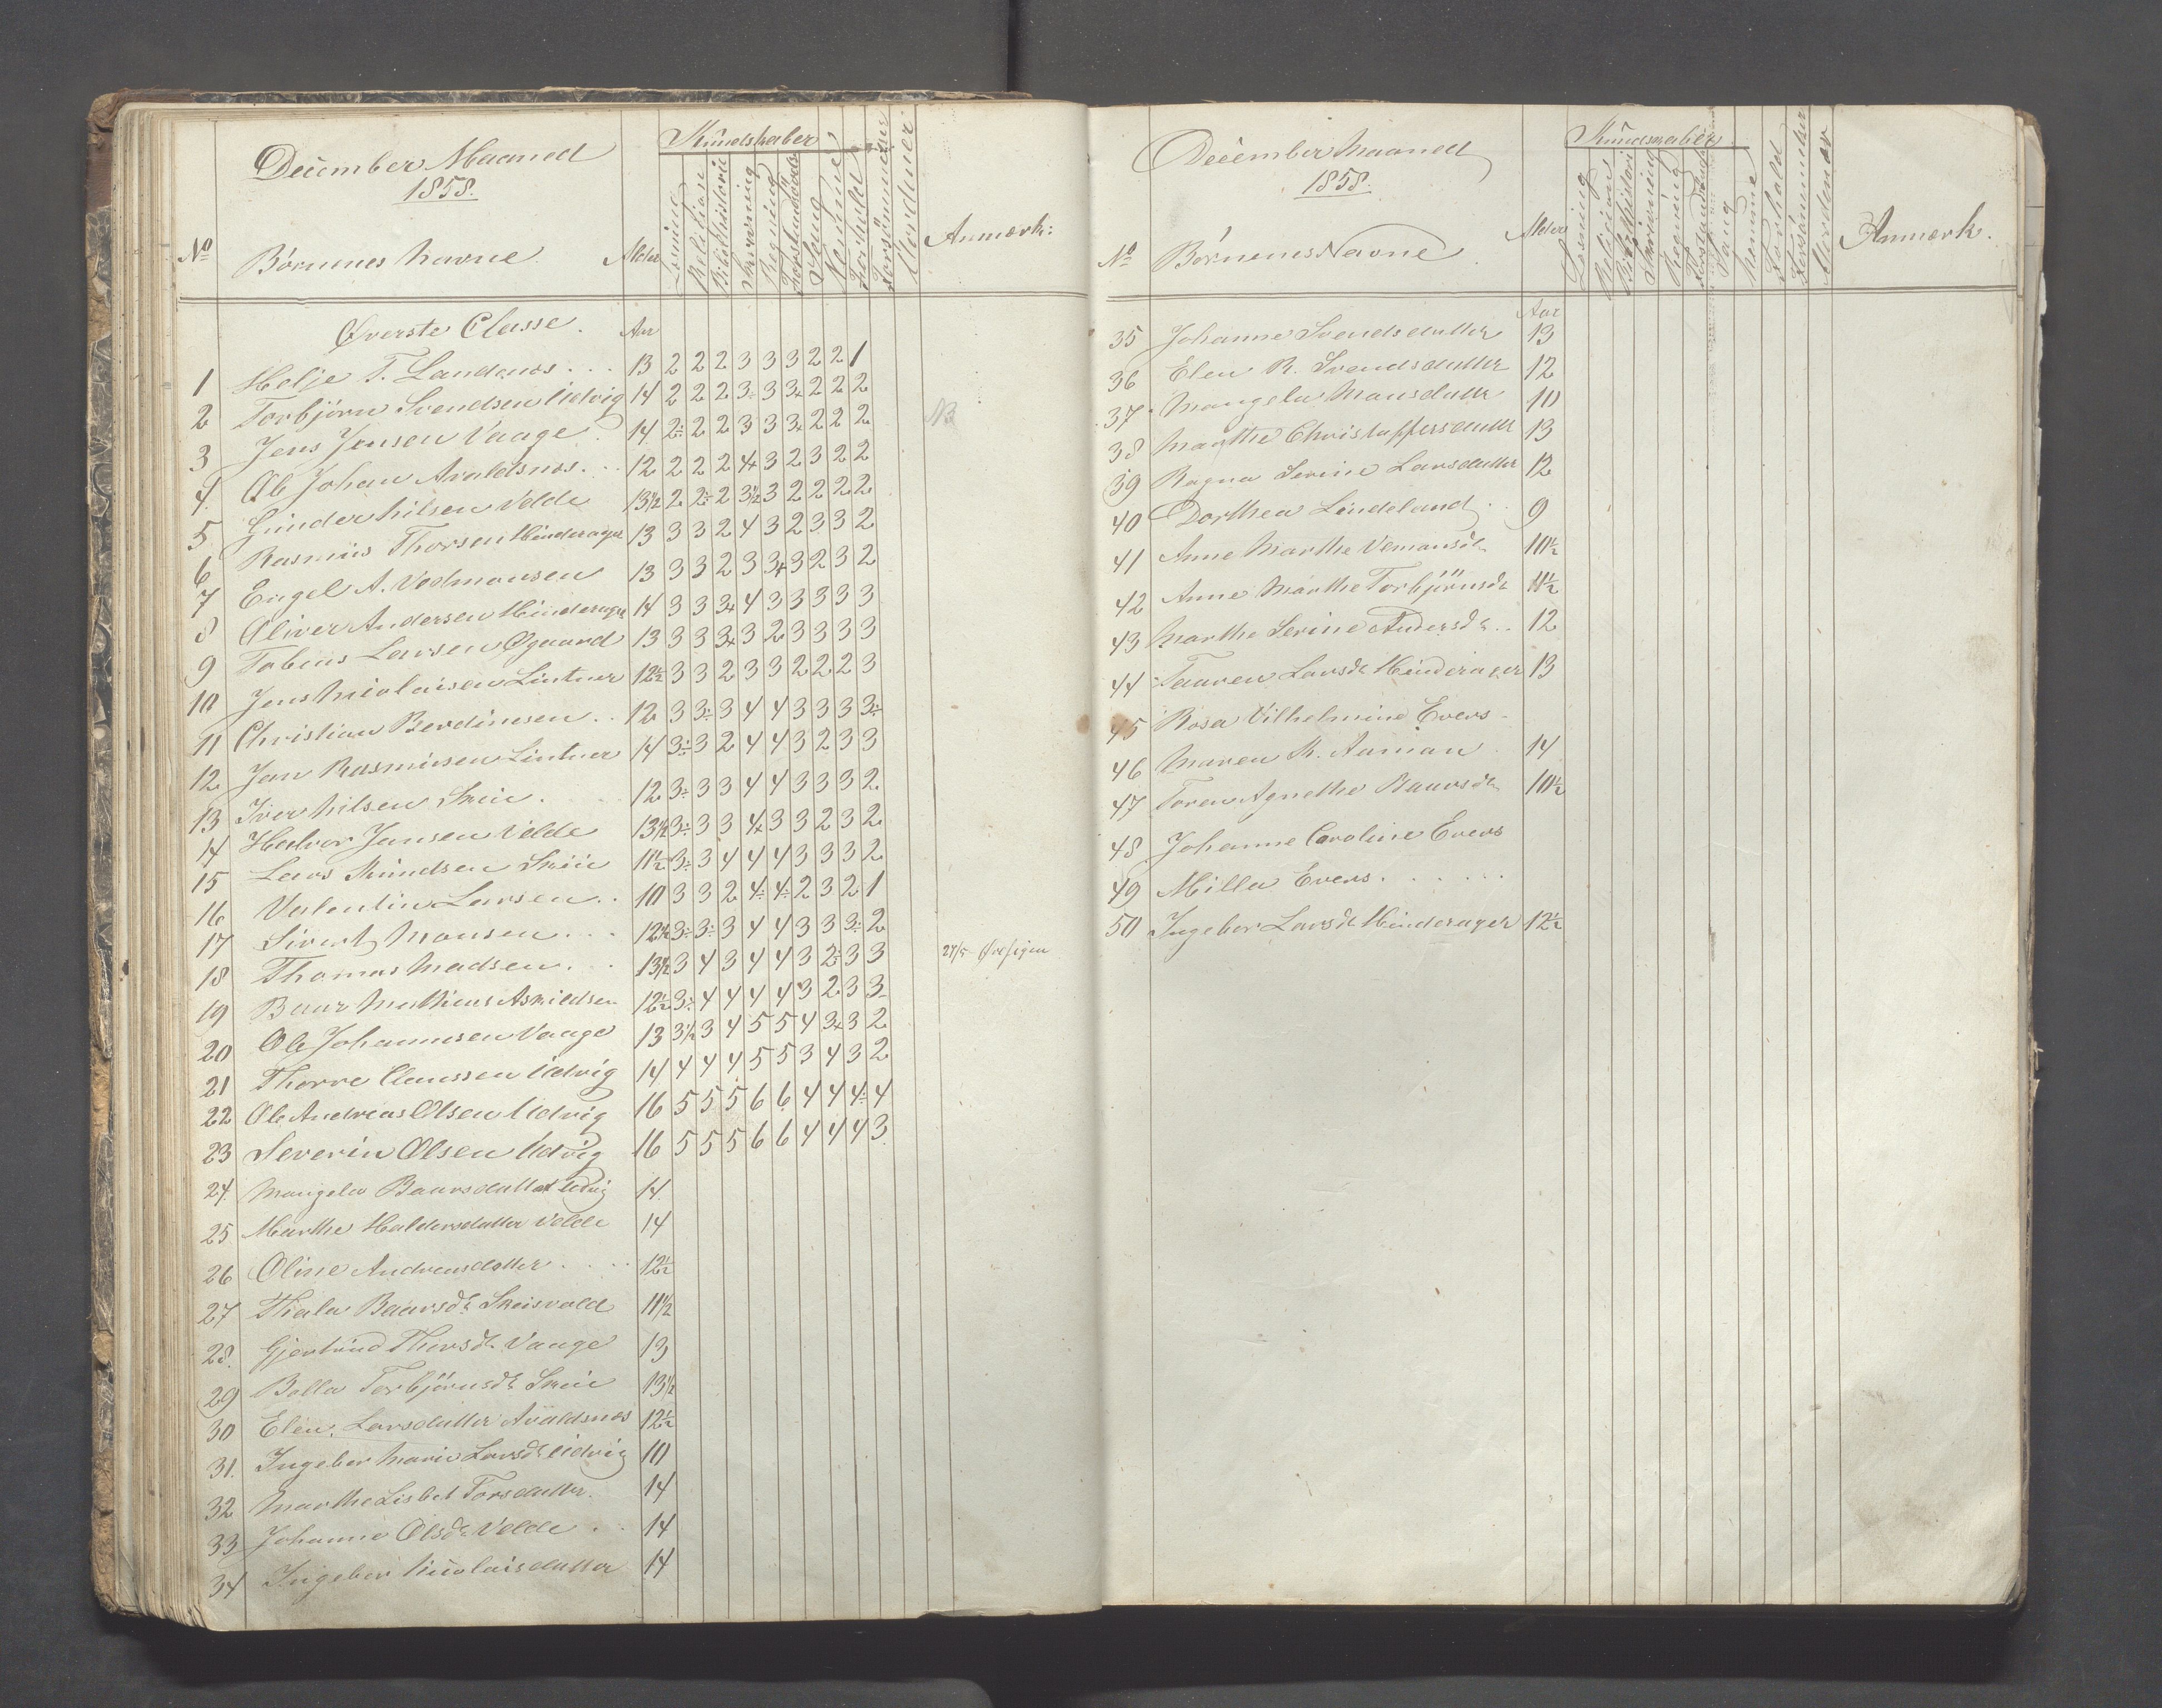 December Maaned
1858.
Kundskaber
No Børnenes Navne. Alder Læsning Religion Bibelhistorie Skrivning Regning Forstandsøvelse Sang Nemme Forhold Forsömmelser Værdner Anmærk:
Øverste Classe. Aar
1 Helje T. Landenes . . . 13 2 2 2 3 3 3 2 2 1
2 Torbjörn Svendsen Utvig 14 2 2 2 3÷ 3 3+ 2 2 2
3 Jens Jensen Vaage. 14 2÷ 2 2 3 3 3+ 2 2 2 NB
4. Ole Johan Avaldsnes. . . 12 2 2 2 4+ 3 2 3 2 2
5 Gunder Nilsen Velde 13½ 2 2÷ 2 3½ 3 2 2 2 2
6 Rasmus Thorsen Hinderager 13 3 3 2 4 3 2 3 3 2
7 Engel A. Vedmonsen 13 3 3 2 3 3+ 3 2 3 2
8 Oliver Andersen Hinderager 14 3 3 3+ 4 3 3 3 3 3
9 Tobias Larsen Øgaard 13 3 3 3+ 3 2 3 3 3 3
10 Jens Nicolaisen Lintner 12½ 3 3 2 3 3 2 2 2 3
11 Christian Berdinesen . . 12 3 3÷ 3 4 4 3 3 3 3÷
12 Jan Rasmusen Lintner 14 3÷ 3 2 4 4 3 2 3 3
13 Iver Nilsen Skeie. 12 3÷ 3 3 4 4 3 3 3 2
14 Halvor Jansen Velde 13½ 3÷ 3 3 4+ 3 3 2 3 2
15 Lars Knudsen Skeie 11½ 3÷ 3 4 4 4 3 3 3 2
16 Valentin Larsen . . 10 3 3 2 4÷ 4÷ 2 3 2 1
17 Sivert Monsen . . . 12½ 3÷ 3÷ 3 4 4 3 3 3÷ 2
18 Thomas Madsen . . 13½ 3 4 3 4 4 3 2÷ 3 3 27/5
19 Baar Mathias Askildsen 12½ 3÷ 4 4 4 4 3 2 3 3
20 Ole Johannesen Vaage 13 3½ 3 4 5 5 4 3+ 3 2
21 Thorre Claussen Utvig 14 4 4 4 5 5 3 4 3 2
22 Ole Andreas Olsen Utvig 16 5 5 5 6 6 4 4 4÷ 4
23 Severin Olsen Utvig 16 5 5 5 6 6 4 4 4 3
24. Mangela Baarsdatter Utvig 14.
25 Marthe Haldorsdatter Velde 14
26 Oline Andreasdatter . . . . 12½
27 Thala Baarsdr Skeisvold 11½
28. Gjertrud Thorsdr Vaage 13
29 Bolla Torbjörnsdr Skeie 13½
30 Elen Larsdatter Avaldsnes 12½
31. Ingebor Marie Larsdr Utvig 10
32 Marthe Lisbet Torsdatter. 14
33 Johanne Olsdr Velde . . 14
34 Ingebor Nicolaisdatter 14
December Maaned
1858.
Kundskaber
No Børnenes Navne Alder Læsning Religion Bibelhistorie Skrivning Regning Forstandsøvelse Sang Nemme Forhold Forsömmelser Værdner Anmærk.
Aar
35 Johanne Svendsdatter 13
36 Elen R. Svendsdatter 12
37 Mangela Mansdatter 10
38 Marthe Christoffersdatter 13
39 Ragna Serine Larsdatter 12
40 Dorthea Lindeland . . 9
41 Anne Marthe Vemansdr 11½
42 Anne Marthe Torbjörnsdr 11½
43 Marthe Serine Andersdr . . 12
44 Taaren Larsdr Hinderager 13
45 Rosa Vilhelmine Evers
46 Maren K. Aaman 14
47 Toren Agnethe Baarsdr 10½
48 Johanne Caroline Evers
49 Milla Evers . . . . . .
50 Ingebor Larsdr Hinderager 12½